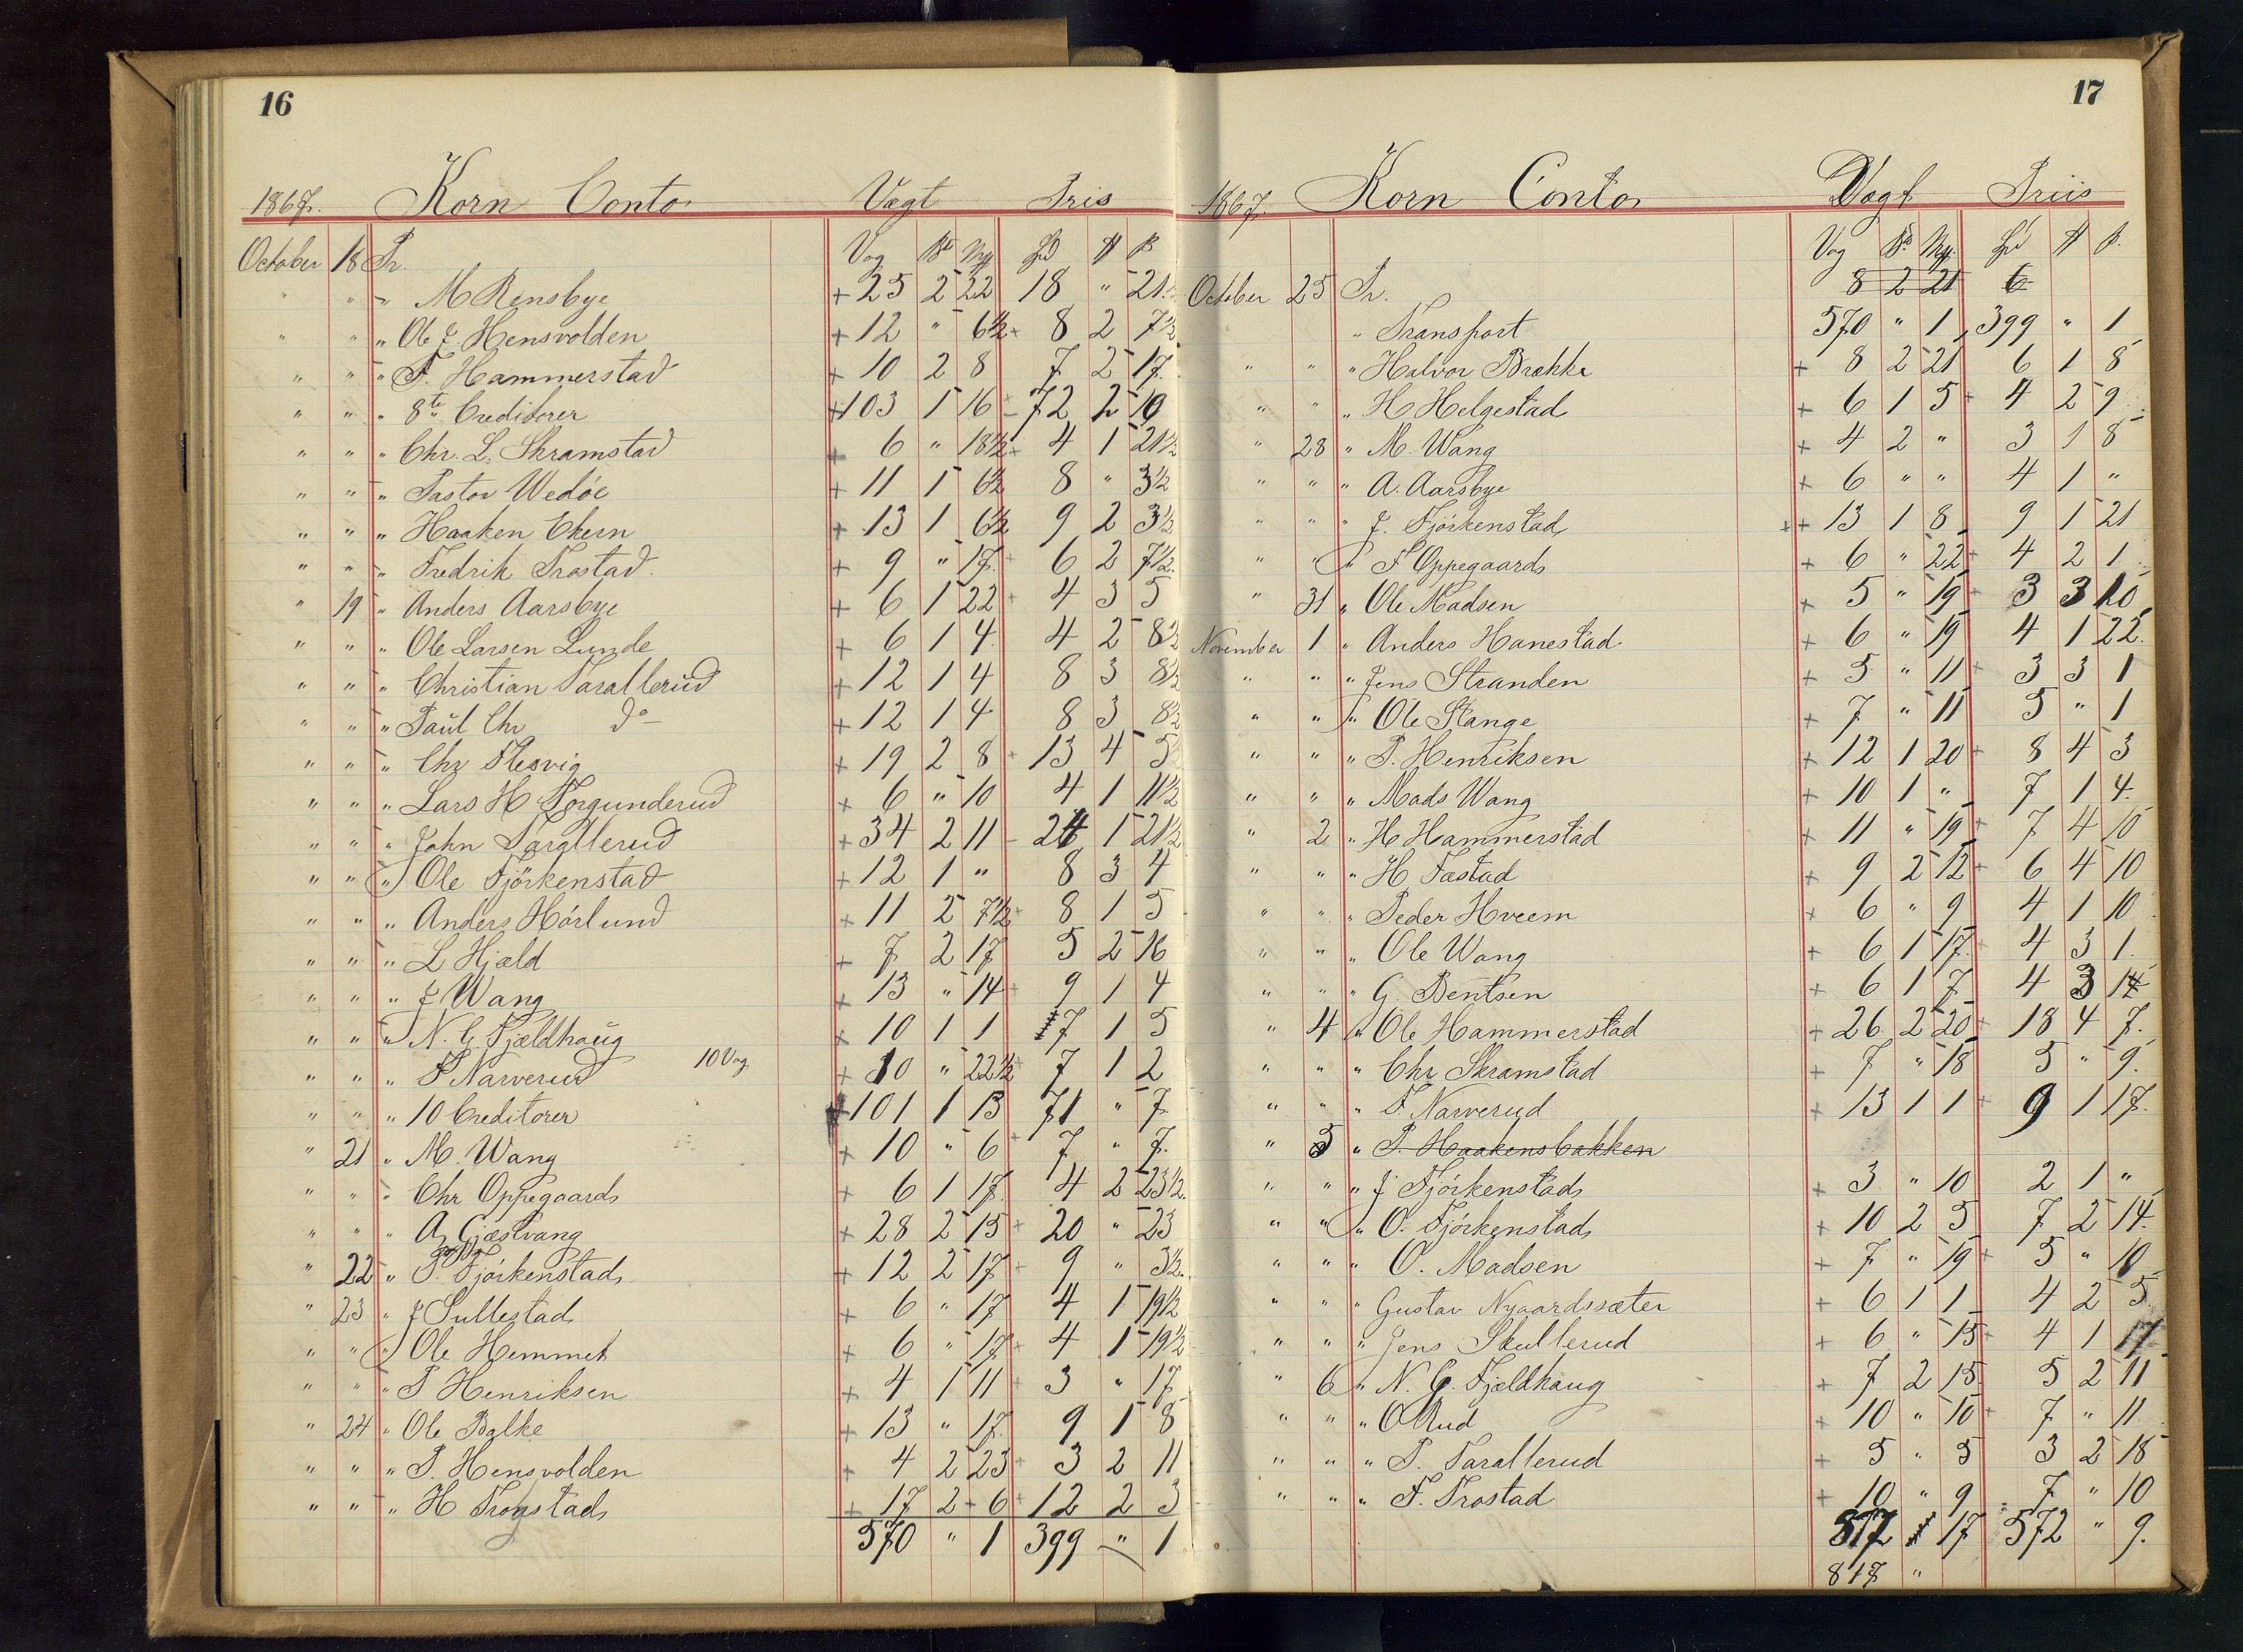 16
1867. Korn Conto Vagt Pris
October 18 Pr. Vog Bd Mk Spd # ß
" " " M Rensbye + 25 2 22 18 " 21
" " " Ole J. Hensvolden + 12 " 6½ + 8 2 7½
" " " F. Hammerstad + 10 2 8 7 2 17
" " " 8te Creditorer + 103 1 16 72 2 10
" " " Chr. L. Skramstad + 6 " 18½ + 4 1 21½
" " " Pastor Wedöe + 11 1 6½ 8 " 3½
" " " Haaken Ekern + 13 1 6½ 9 2 3½
" " " Fredrik Trostad + 9 " 17 + 6 2 7½
" 19 " Anders Aarsbye + 6 1 22 + 4 3 5
" " " Ole Larsen Lunde + 6 1 4 4 2 8½
" " " Christian Tarallerud + 12 1 4 8 3 8½
" " " Paul Chr do + 12 1 4 8 3 8½
" " " Chr Flesvig + 19 2 8 + 13 4 5
" " " Lars H Torgunderud + 6 " 10 4 1 11½
" " " John Tarallerud + 34 2 11 24 1 21½
" " " Ole Fjörkenstad + 12 1 " 8 3 4
" " " Anders Hörlund + 11 2 7½ + 8 1 5
" " " L Hjæld + 7 2 17 5 2 16
" " " J Wang + 13 " 14 + 9 1 4
" " " N. C. Fjældhaug + 10 1 1 7 1 5
" " " F Narverud 10 Vog + 10 " 22½ + 7 1 2
" " " 10 Creditorer + 101 1 13 71 " 7
" 21 " M. Wang + 10 " 6 + 7 " 7
" " " Chr Oppegaard + 6 1 17 4 2 23½
" " " A Gjæstvang + 28 2 15 + 20 " 23
" 22 " P. Fjörkenstad + 12 2 17 + 9 " 3½
" 23 " J Sullestad + 6 " 17 4 1 19½
" " " Ole Hemmet + 6 " 17 + 4 1 19½
" " " P Henriksen + 4 1 11 + 3 " 17
" 24 " Ole Balke + 13 " 17 9 1 8
" " " P. Hensvolden + 4 2 23 + 3 2 11
" " " H Trogstad + 17 2 6 + 12 2 3
570 " 1 399 " 1
17
1867. Korn Conto Vagt Priis
Vog Bd. Mk. Spd # ß.
October 25 Pr. 8 2 21 6
" Transport 570 " 1 399 " 1
" " " Halvor Brække + 8 2 21 6 1 8
" " " H Helgestad + 6 1 5 + 4 2 9
" 28 " M. Wang + 4 2 " 3 1 8
" " " A. Aarsbye + 6 " " 4 1 "
" " " J. Fjörkenstad + 13 1 8 9 1 21
" " " F Oppegaard + 6 " 22 + 4 2 1
" 31 " Ole Madsen + 5 " 19 + 3 3 10
November 1 " Anders Hanestad + 6 " 19 4 1 22
" " " Jens Stranden + 5 " 11 + 3 3 1
" " " Ole Stange + 7 " 11 5 " 1
" " " P. Henriksen + 12 1 20 + 8 4 3
" " " Mads Wang + 10 1 " 7 1 4
" 2 " H Hammerstad + 11 " 19 + 7 4 10
" " " H Fæstad + 9 2 12 + 6 4 10
" " " Peder Hveem + 6 " 9 4 1 10
" " " Ole Wang + 6 1 17 + 4 3 1
" " " G. Bentsen + 6 1 7 4 3 14
" 4 " Ole Hammerstad + 26 2 20 + 18 4 7
" " " Chr Skramstad + 7 " 18 5 " 9
" " " F Narverud + 13 1 1 + 9 1 17
" 5 " P. Haakensbakken
" " " J Fjörkenstad + 3 " 10 2 1 "
" " " O. Fjörkenstad + 10 2 5 7 2 14
" " " O. Madsen + 7 " 19 + 5 " 10
" " " Gustav Nygaardssæter + 6 1 1 4 2 5
" " " Jens Skullerud + 6 " 15 + 4 1 17
" 6 " N. C. Fjældhaug + 7 2 15 5 2 11
" " " O Rud + 10 " 10 + 7 " 11
" " " P. Tarallerud + 5 " 5 3 2 18
" " " F. Trostad + 10 " 9 7 " 10
817 17 572 " 9.
817 "